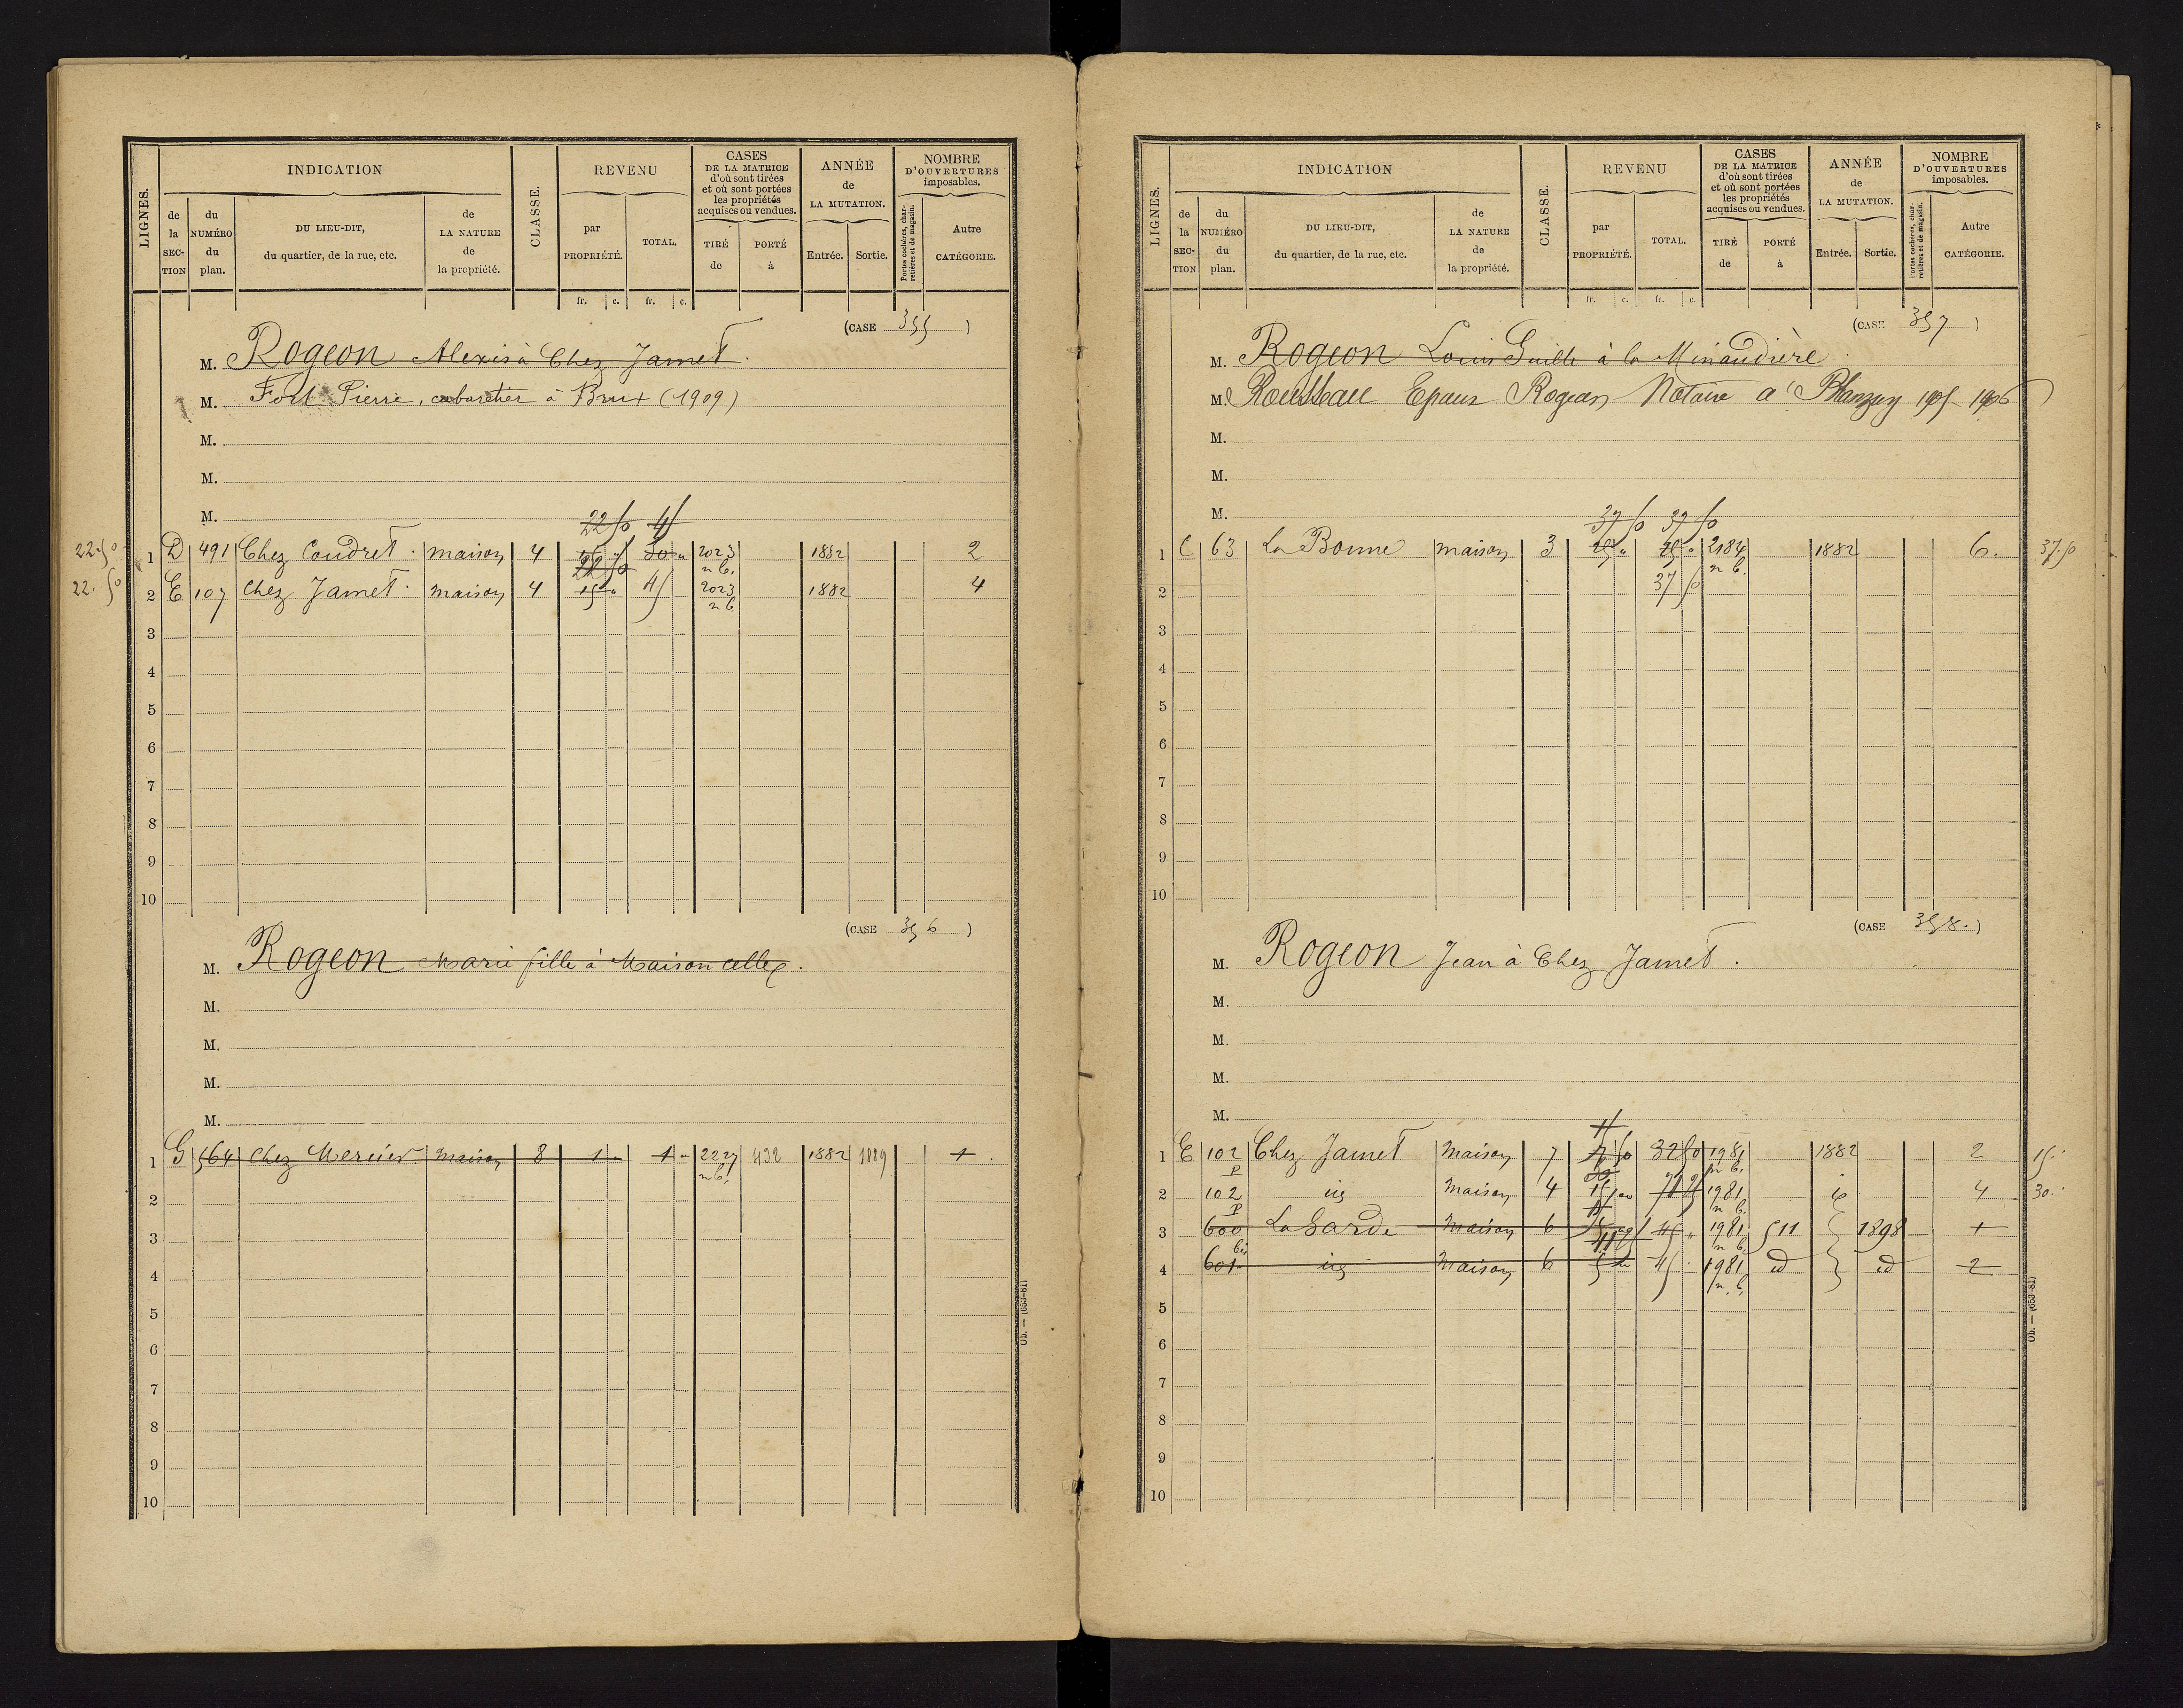 LIGNES.
INDICATION
de la SECTION
du NUMÉRO du plan.
DU LIEU-DIT, du quartier, de la rue, etc.
de LA NATURE de la propriété.
CLASSE.
REVENU
par PROPRIÉTÉ.
TOTAL.
fr. c. fr. c.
CASES DE LA MATRICE d'où sont tirées et où sont portées les propriétés acquises ou vendues.
TIRÉ de
PORTÉ à
ANNÉE de LA MUTATION.
Entrée. Sortie.
NOMBRE D'OUVERTURES imposables.
Portes cochères, charretières et de magasin.
Autre CATÉGORIE.
(CASE 355 )
M. Rogeon Alexis à Chez Jamet.
M. Fort Pierre, cabaretier à Brux (1909)
M.
M.
M.
22 50 45
22.50 1 D 491 Chez Coudret. maison 4 30 " 2023 n b. 1882 2
22 50
22.50 2 E 107 Chez Jamet. maison 4 15 " 45 2023 n b 1882 4
3
4
5
6
7
8
9
10
(CASE 356 )
M. Rogeon Marie fille à Maison celle
M.
M.
M.
M.
1 G 564 Chez Mercier. maison 8 1 " 1 " 2227 n b. 432 1882 1889 1
2
3
4
5
6
7
8
9
10
Ob. — (653-81)
LIGNES.
INDICATION
de la SECTION
du NUMÉRO du plan.
DU LIEU-DIT, du quartier, de la rue, etc.
de LA NATURE de la propriété.
CLASSE.
REVENU
par PROPRIÉTÉ.
TOTAL.
fr. c. fr. c.
CASES DE LA MATRICE d'où sont tirées et où sont portées les propriétés acquises ou vendues.
TIRÉ de
PORTÉ à
ANNÉE de LA MUTATION.
Entrée. Sortie.
NOMBRE D'OUVERTURES imposables.
Portes cochères, charretières et de magasin.
Autre CATÉGORIE.
(CASE 357 )
M. Rogeon Louis Guille à la Minaudière
M. Rousseau Epoux Rogeon Notaire a Blanzay 1905 1906
M.
M.
M.
37 50 37 50
1 C 63 La Bonne maison 3 25 " 25 " 2184 n b. 1882 6. 37.50
2 37 50
3
4
5
6
7
8
9
10
(CASE 358. )
M. Rogeon Jean à Chez Jamet.
M.
M.
M.
M.
1 E 102 p Chez Jamet Maison 7 32 50 1981 n b. 1882 2 15.
30
2 102 p Maison 4 1981 n b. 4 30.
3 600 La Garde Maison 6 45 " 1981 n b 511 1898 1
4 601 bis Maison 6 45 1981 n. b. id id 2
5
6
7
8
9
10
Ob. — (653-81)